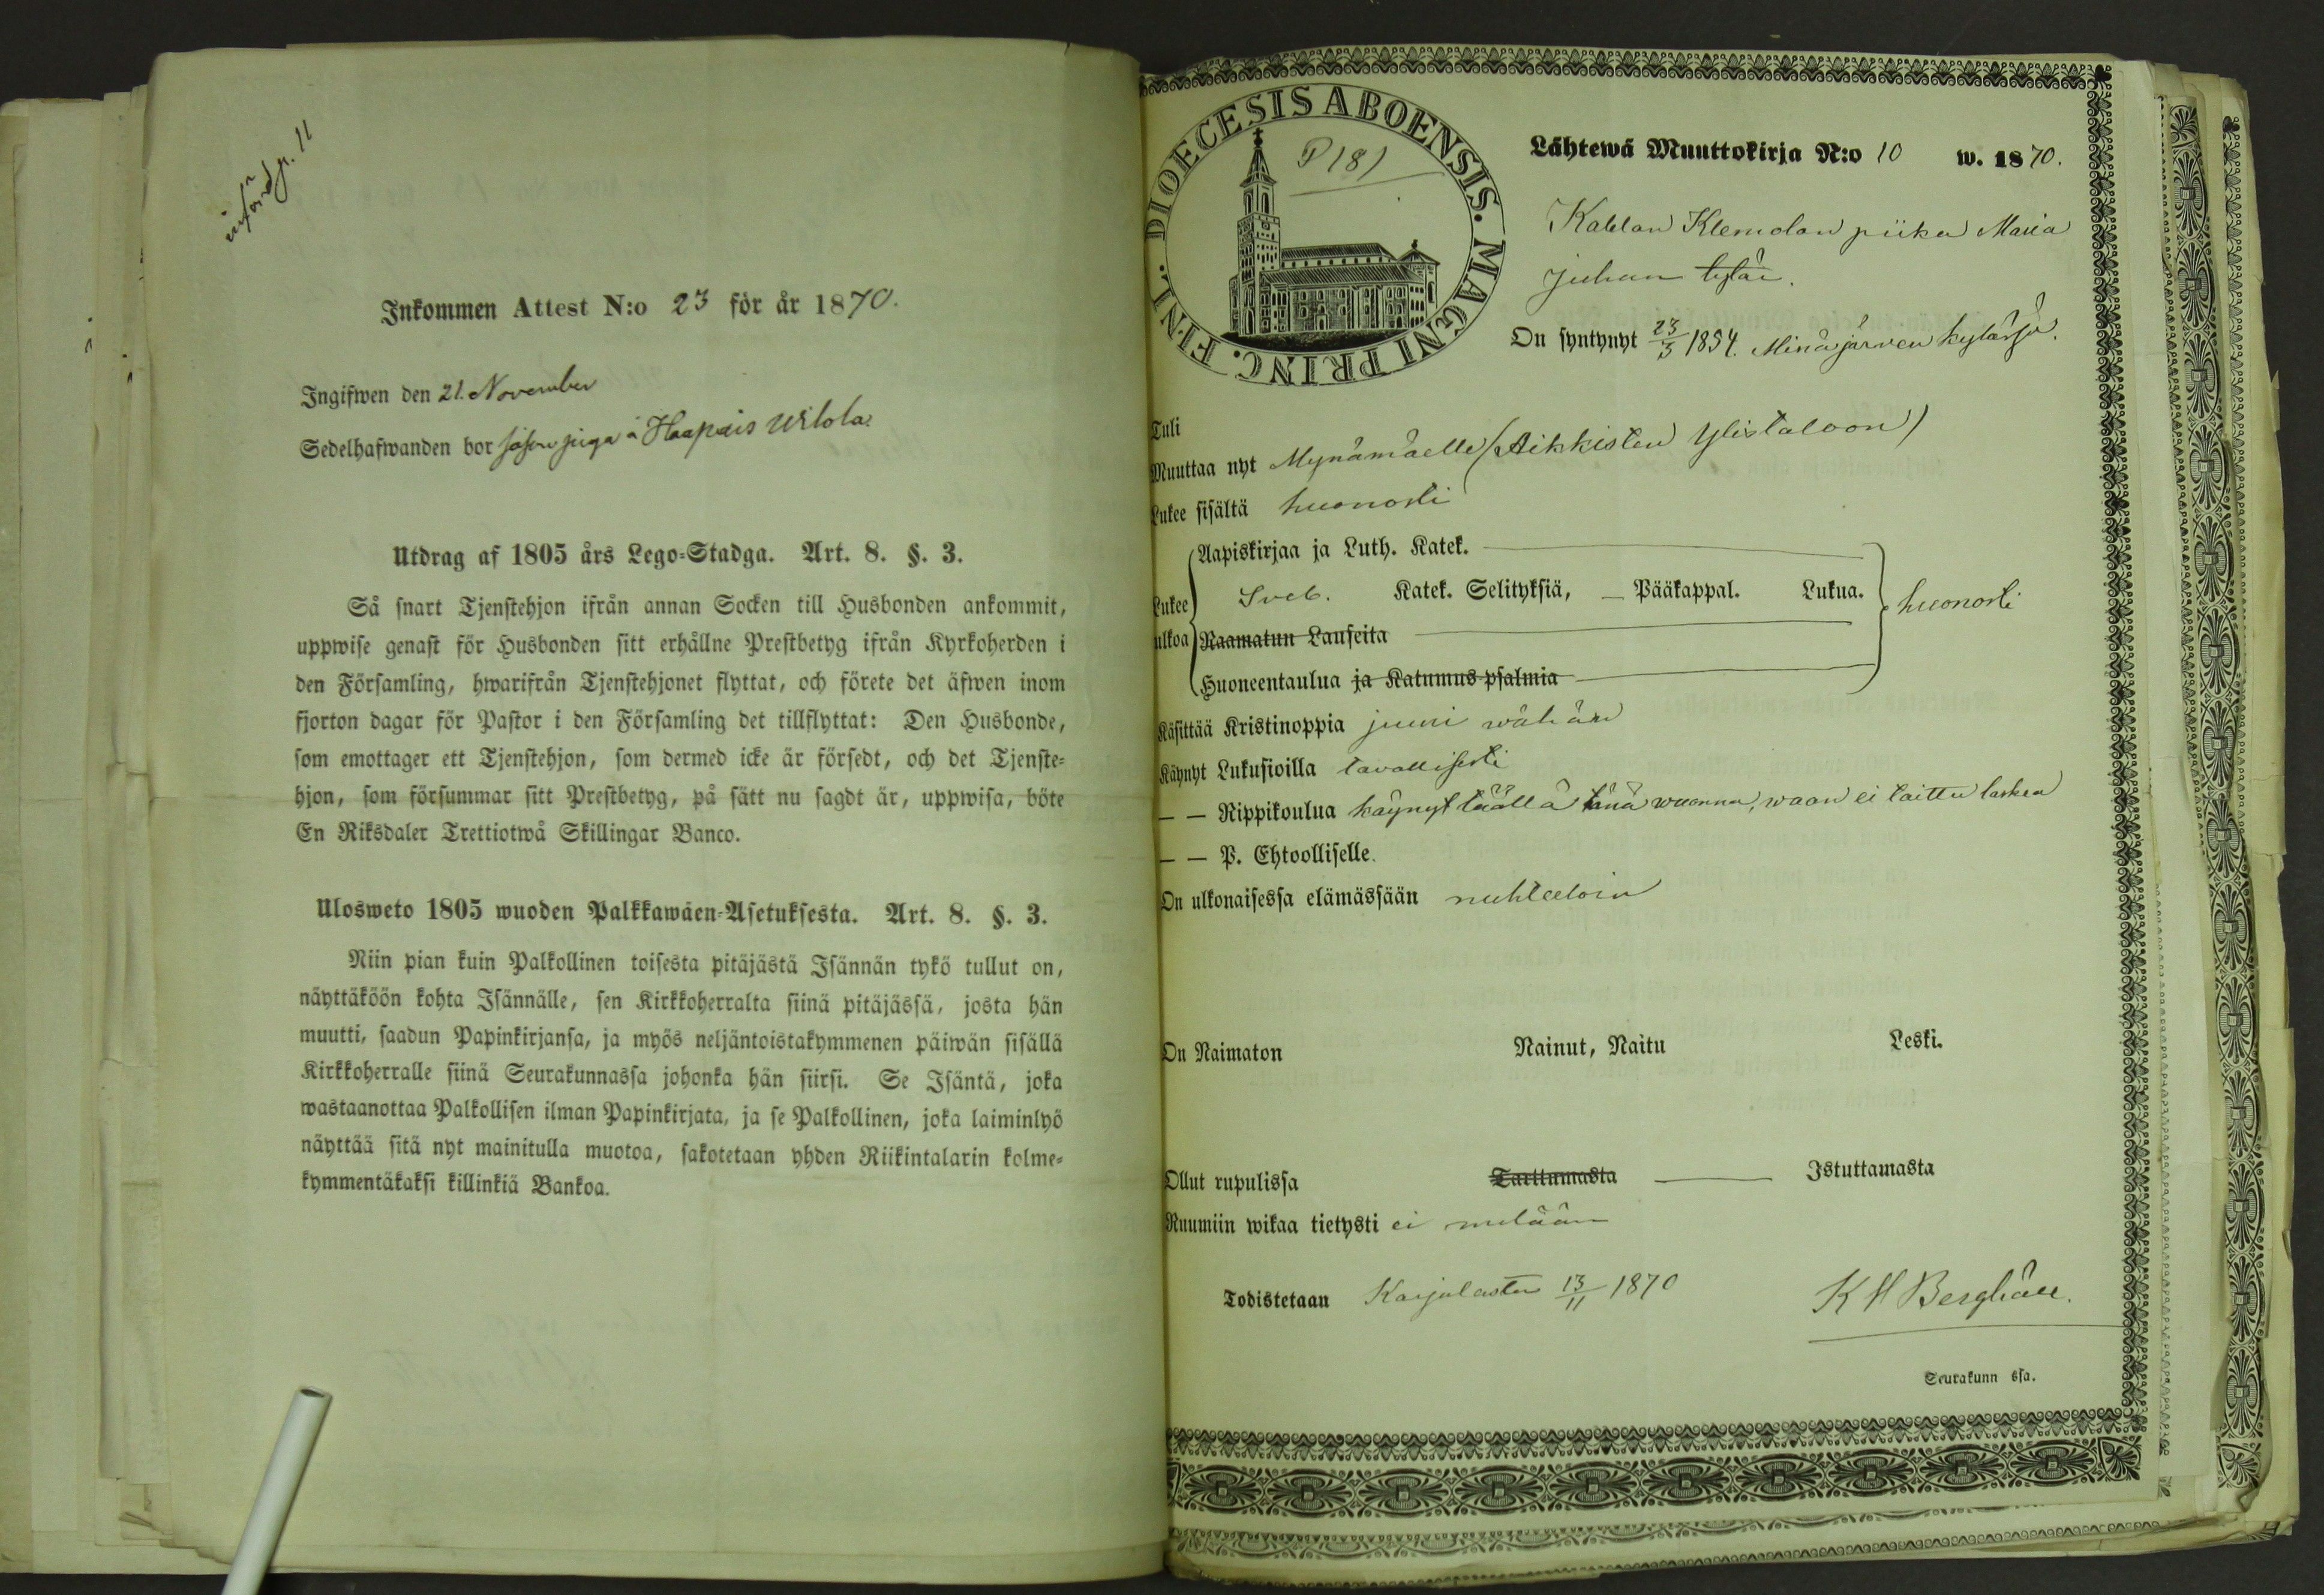 införd p. 11
Inkommen Attest N:o 23 för år 1870.
Ingifwen den 21. November
Sedelhafwanden bor såsom piga å Haapais Uitola
Utdrag af 1805 års Lego-Stadga. Art. 8. §. 3.
Så snart Tjenstehjon ifrån annan Socken till Husbonden ankommit,
uppwise genast för Husbonden sitt erhållne Prestbetyg ifrån Kyrkoherden i
den Församling, hwarifrån Tjenstehjonet flyttat, och förete det äfwen inom
fjorton dagar för Pastor i den Församling det tillflyttat: Den Husbonde,
som emottager ett Tjenstehjon, som dermed icke är försedt, och det Tjenste-
hjon, som försummar sitt Prestbetyg, på sätt nu sagdt är, uppwisa, böte
En Riksdaler Trettiotwå Skillingar Banco.
Ulosweto 1805 wuoden Palkkawäen-Asetuksesta. Art. 8. §. 3.
Niin pian kuin Palkollinen toisesta pitäjästä Isännän tykö tullut on,
näyttäköön kohta Isännälle, sen Kirkkoherralta siinä pitäjässä, josta hän
muutti, saadun Papinkirjansa, ja myös neljäntoistakymmenen päiwän sisällä
Kirkkoherralle siinä Seurakunnassa johonka hän siirsi. Se Isäntä, joka
wastaanottaa Palkollisen ilman Papinkirjata, ja se Palkollinen, joka laiminlyö
näyttää sitä nyt mainitulla muotoa, sakotetaan yhden Riikintalarin kolme-
kymmentäkaksi killinkiä Bankoa.
DIOECESIS ABOENSIS. MAGNI PRINC. FINL.
P 181
Lähtewä Muuttokirja N:o 10 w. 1870.
Kallan Klemolan piika Maria
Juhan tytär.
On syntynyt 23/3 1854. Minäjärven kylässä.
Tuli
Muuttaa nyt Mynämäelle (Aikkisten Ylistaloon)
Lukee sisältä huonosti
Aapiskirjaa ja Luth. Katek.
Lukee Sveb. Katek. Selityksiä, — Pääkappal. Lukua. huonosti
ulkoa Raamatun Lauseita
Huoneentaulua ja Katumus psalmia
Käsittää Kristinoppia juuri wähän
Käynyt Lukusioilla tavallisesti
— — Rippikoulua käynyt täällä tänä wuonna, waan ei taittu laskea
— — P. Ehtoolliselle.
On ulkonaisessa elämässään nuhteetoin
On Naimaton Nainut, Naitu Leski.
Ollut rupulissa Tarttumasta Istuttamasta
Ruumiin wikaa tietysti ei mitään
Todistetaan Karjalasta 13/11 1870 K H Berghäll.
Seurakunn ssa.